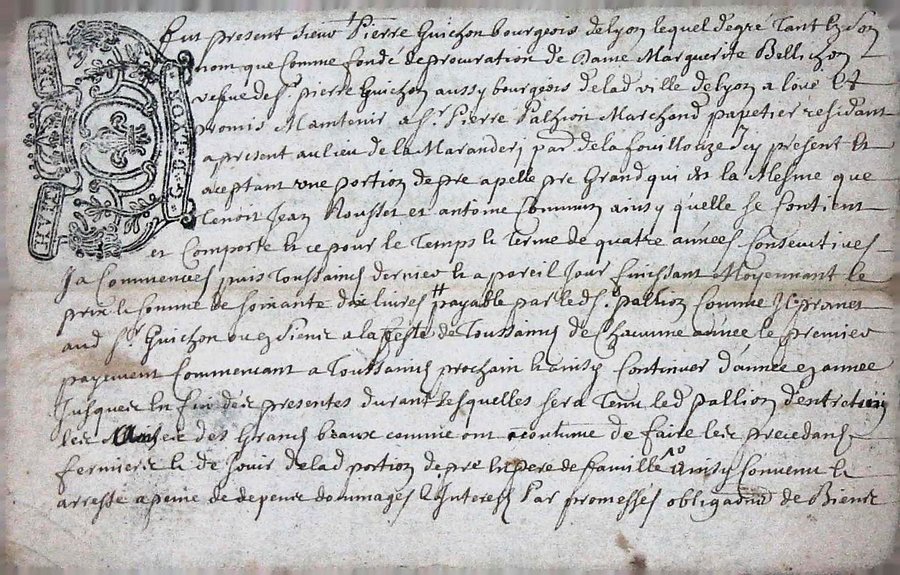 HUIT DENIE
G. DE LYON
Fut present sieur Pierre Guichon bourgeois de lyon lequel de gré tant en son
nom que comme fondé de procuration de Dame Marguerite Bellichon
vefve de Sr. pierre Guichon aussy bourgeois de lad ville de lyon a loué et
promis Maintenir a Sr. Pierre Pallion Marchand papetier residant
a present au lieu de la Maranderj par. de la fouillouze Icy present et
aceptant une portion de pre apelle pre Grand qui est la Mesme que
tenoit Jean Rousset et antoine ainsy quelle se contient
et Comporte et ce pour le Temps et Terme de quatre années Consecutives
Ja Commencées puis Toussaincts dernier et a pareil Jour finissant Moyennant le
prix et somme de soixante dix livres payable par led Sr. pallion Comme Il promet
aud Sr. Guichon ou es siens a la feste de Toussaincts de Chacunne année le premier
payement Commencant a Toussaincts prochain et ainsy Continuer d'année en année
Jusques en fin des presentes durant lesquelles sera Tenu led pallion d'entretenir
les des Grands beaux comme ont acoutume de faire les precedans
fermiers et de Jouir de lad portion de pre en pere de famille ainsy Convenu et
arresté a peine de depens dommages et Interests Par promesses obligaon de Biens